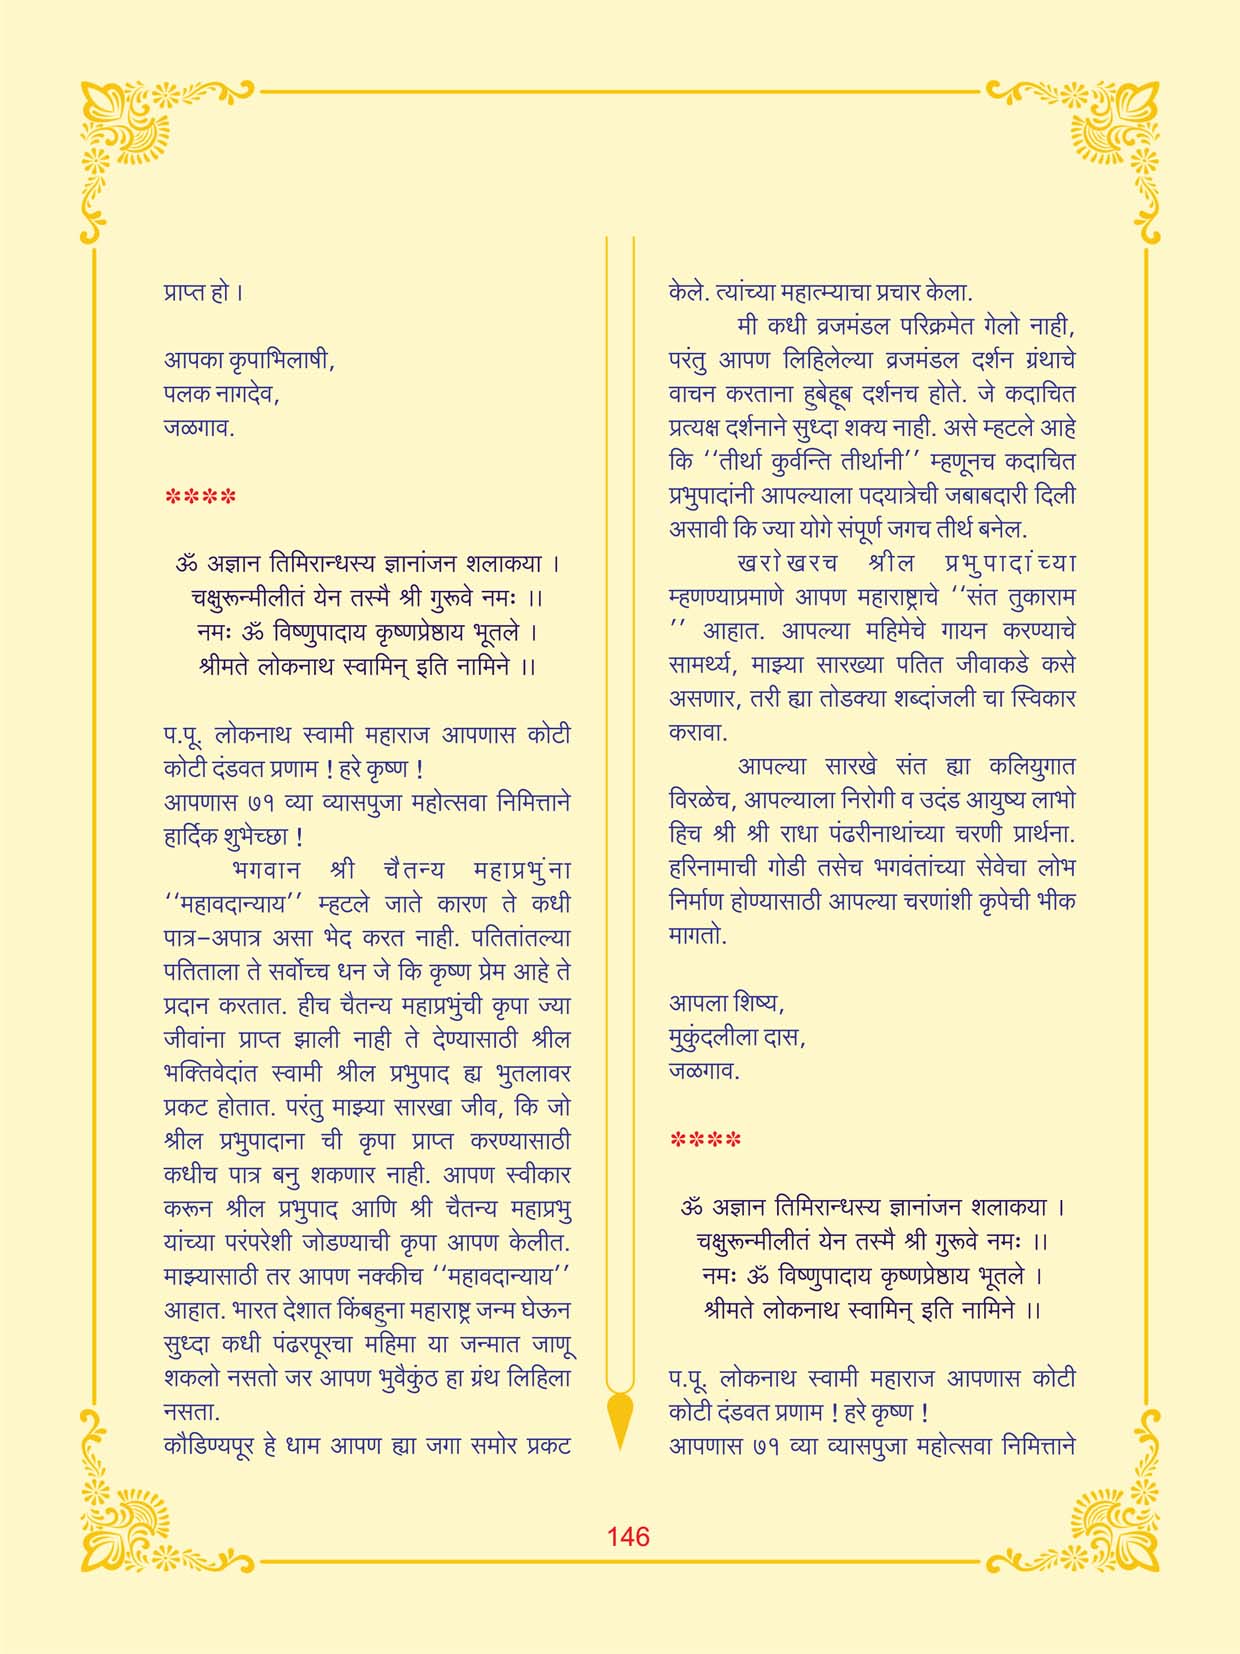 प्राप्त हो ।
आपका कृपाभिलाषी,
पलक नागदेव,
जळगाव.
****
ॐ अज्ञान तिमिरान्धस्य ज्ञानांजन शलाकया ।
चक्षुरून्मीलीतं येन तस्मै श्री गुरूवे नमः ।।
नमः ॐ विष्णुपादाय कृष्णप्रेष्ठाय भूतले ।
श्रीमते लोकनाथ स्वामिन् इति नामिने ।।
प.पू. लोकनाथ स्वामी महाराज आपणास कोटी
कोटी दंडवत प्रणाम ! हरे कृष्ण !
आपणास ७१ व्या व्यासपुजा महोत्सवा निमित्ताने
हार्दिक शुभेच्छा !
भगवान श्री चैतन्य महाप्रभुंना
‘‘महावदान्याय’’ म्हटले जाते कारण ते कधी
पात्र–अपात्र असा भेद करत नाही. पतितांतल्या
पतिताला ते सर्वोच्च धन जे कि कृष्ण प्रेम आहे ते
प्रदान करतात. हीच चैतन्य महाप्रभुंची कृपा ज्या
जीवांना प्राप्त झाली नाही ते देण्यासाठी श्रील
भक्तिवेदांत स्वामी श्रील प्रभुपाद ह्य भुतलावर
प्रकट होतात. परंतु माझ्या सारखा जीव, कि जो
श्रील प्रभुपादाना ची कृपा प्राप्त करण्यासाठी
कधीच पात्र बनु शकणार नाही. आपण स्वीकार
करून श्रील प्रभुपाद आणि श्री चैतन्य महाप्रभु
यांच्या परंपरेशी जोडण्याची कृपा आपण केलीत.
माझ्यासाठी तर आपण नक्कीच ‘‘महावदान्याय’’
आहात. भारत देशात किंबहुना महाराष्ट्र जन्म घेऊन
सुध्दा कधी पंढरपूरचा महिमा या जन्मात जाणू
शकलो नसतो जर आपण भुवैकुंठ हा ग्रंथ लिहिला
नसता.
कौडिण्यपूर हे धाम आपण ह्या जगा समोर प्रकट
केले. त्यांच्या महात्म्याचा प्रचार केला.
मी कधी व्रजमंडल परिक्रमेत गेलो नाही,
परंतु आपण लिहिलेल्या व्रजमंडल दर्शन ग्रंथाचे
वाचन करताना हुबेहूब दर्शनच होते. जे कदाचित
प्रत्यक्ष दर्शनाने सुध्दा शक्य नाही. असे म्हटले आहे
कि ‘‘तीर्था कुर्वन्ति तीर्थानी’’ म्हणूनच कदाचित
प्रभुपादांनी आपल्याला पदयात्रेची जबाबदारी दिली
असावी कि ज्या योगे संपूर्ण जगच तीर्थ बनेल.
खरोखरच श्रील प्रभुपादांच्या
म्हणण्याप्रमाणे आपण महाराष्ट्राचे ‘‘संत तुकाराम
’’ आहात. आपल्या महिमेचे गायन करण्याचे
सामर्थ्य, माझ्या सारख्या पतित जीवाकडे कसे
असणार, तरी ह्या तोडक्या शब्दांजली चा स्विकार
करावा.
आपल्या सारखे संत ह्या कलियुगात
विरळेच, आपल्याला निरोगी व उदंड आयुष्य लाभो
हिच श्री श्री राधा पंढरीनाथांच्या चरणी प्रार्थना.
हरिनामाची गोडी तसेच भगवंतांच्या सेवेचा लोभ
निर्माण होण्यासाठी आपल्या चरणांशी कृपेची भीक
मागतो.
आपला शिष्य,
मुकुंदलीला दास,
जळगाव.
****
ॐ अज्ञान तिमिरान्धस्य ज्ञानांजन शलाकया ।
चक्षुरून्मीलीतं येन तस्मै श्री गुरूवे नमः ।।
नमः ॐ विष्णुपादाय कृष्णप्रेष्ठाय भूतले ।
श्रीमते लोकनाथ स्वामिन् इति नामिने ।।
प.पू. लोकनाथ स्वामी महाराज आपणास कोटी
कोटी दंडवत प्रणाम ! हरे कृष्ण !
आपणास ७१ व्या व्यासपुजा महोत्सवा निमित्ताने
146